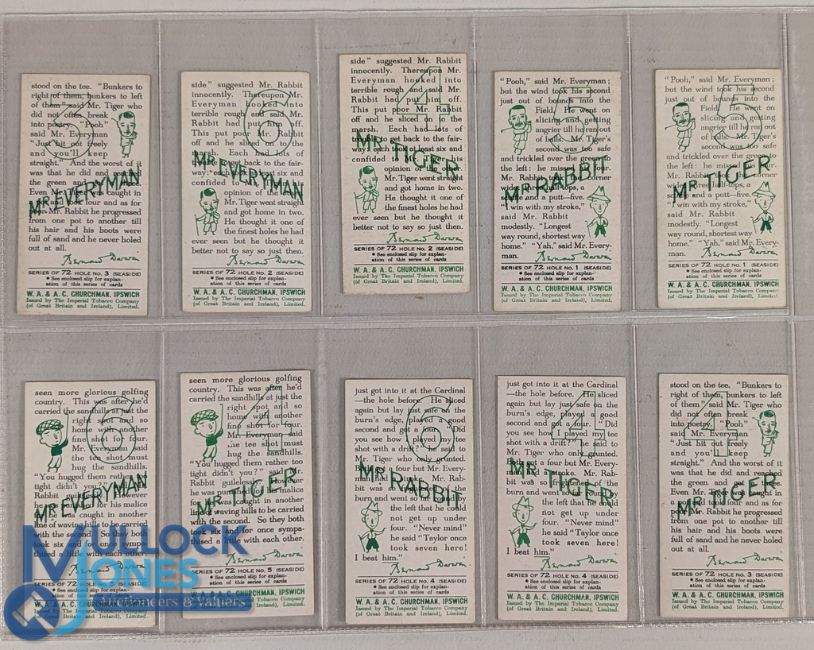 stood on the tee. "Bunkers to
right of them, bunkers to left
of them" said Mr. Tiger who
did not often break
into poetry. "Pooh"
said Mr. Everyman.
"Just hit out freely
and you'll keep
straight." And the worst of it
was that he did and
the green and
Even Mr. caught in
four and as for
Mr. Rabbit he progressed
from one pot to another till
his hair and his boots were
full of sand and he never holed
out at all.
MR. EVERYMAN
Bernard Darwin
SERIES OF 72 HOLE No. 3 (SEASIDE)
• See enclosed slip for explan-
ation of this series of cards
W. A. & A. C. CHURCHMAN, IPSWICH
Issued by The Imperial Tobacco Company
(of Great Britain and Ireland), Limited.
side" suggested Mr. Rabbit
innocently. Thereupon Mr.
Everyman hooked into
terrible rough and said Mr.
Rabbit had put him off.
This put poor Mr. Rabbit
off and he sliced on the
marsh. Each had lots of
to get back to the fair-
way: each lost six and
confided
opinion of
Mr. Tiger went straight
and got home in two.
He thought it one of
the finest holes he had
ever seen but he thought it
better not to say so just then.
6
MR. EVERYMAN
Bernard Darwin
SERIES OF 72 HOLE No. 2 (SEASIDE)
• See enclosed slip for explan-
ation of this series of cards
W. A. & A. C. CHURCHMAN, IPSWICH
Issued by The Imperial Tobacco Company
(of Great Britain and Ireland), Limited.
side" suggested Mr. Rabbit
innocently. Thereupon Mr.
Everyman hooked into
terrible rough and said Mr.
Rabbit had put him off.
This put poor Mr. Rabbit
off and he sliced on the
marsh. Each had lots of
to get back to the fair-
way: each lost six and
confided
opinion of
Mr. Tiger went straight
and got home in two.
He thought it one of
the finest holes he had
ever seen but he thought it
better not to say so just then.
4
MR. TIGER
Bernard Darwin
SERIES OF 72 HOLE No. 2 (SEASIDE)
• See enclosed slip for explan-
ation of this series of cards
W. A. & A. C. CHURCHMAN, IPSWICH
Issued by The Imperial Tobacco Company
(of Great Britain and Ireland), Limited.
"Pooh," said Mr. Everyman;
but the wind took his second
just out of bounds into the
Field. He went on
slicing and getting
angrier till he ran out
of holes. Mr. Tiger's
second was too safe
and trickled over the green to
the left: he missed
corner
tops, a
and a putt—five.
"I win with my stroke,"
said Mr. Rabbit
modestly. "Longest
way round, shortest way
home." "Yah," said Mr. Every-
man.
5
MR. RABBIT
Bernard Darwin
SERIES OF 72 HOLE No. 1 (SEASIDE)
• See enclosed slip for explan-
ation of this series of cards
W. A. & A. C. CHURCHMAN, IPSWICH
Issued by The Imperial Tobacco Company
(of Great Britain and Ireland), Limited.
"Pooh," said Mr. Everyman;
but the wind took his second
just out of bounds into the
Field. He went on
slicing and getting
angrier till he ran out
of holes. Mr. Tiger's
second was too safe
and trickled over the green to
the left: he missed
corner
tops, a
and a putt—five.
"I win with my stroke,"
said Mr. Rabbit
modestly. "Longest
way round, shortest way
home." "Yah," said Mr. Every-
man.
5
MR. TIGER
Bernard Darwin
SERIES OF 72 HOLE No. 1 (SEASIDE)
• See enclosed slip for explan-
ation of this series of cards
W. A. & A. C. CHURCHMAN, IPSWICH
Issued by The Imperial Tobacco Company
(of Great Britain and Ireland), Limited.
seen more glorious golfing
country. This was after he'd
carried the sandhills at just the
right spot and so
home with another
fine shot for four.
Mr. Everyman said
the tee shot must
hug the sandhills.
"You hugged them
tight didn't you?"
Rabbit
he was
for his malice
caught in another
line of waving hills to be carried
with the second. So they both
took six and once sympa-
thised with each other.
6
MR. EVERYMAN
W. A. & A. C. CHURCHMAN, IPSWICH
seen more glorious golfing
country. This was after he'd
carried the sandhills at just the
right spot and so
home with another
fine shot for four.
Mr. Everyman said
the tee shot must
hug the sandhills.
"You hugged them rather too
tight didn't you?" said Mr.
Rabbit
he was
malice
caught in another
line of waving hills to be carried
with the second. So they both
took six and once sympa-
thised with each other.
4
MR. TIGER
Bernard Darwin
SERIES OF 72 HOLE No. 5 (SEASIDE)
• See enclosed slip for explan-
ation of this series of cards
W. A. & A. C. CHURCHMAN, IPSWICH
Tobacco Company
Ireland), Limited.
just got into it at the Cardinal
—the hole before. He sliced
again but lay just safe on the
burn's edge, played a good
second and got a four. "Did
you see how I played my tee
shot with a drift?" he said to
Mr. Tiger who only grunted.
four but Mr. Every-
man
bit was
burn
the left that he could
not get up under
four. "Never mind"
he said "Taylor once
took seven here!
I beat him."
6
MR. RABBIT
Bernard Darwin
SERIES OF 72 HOLE No. 4 (SEASIDE)
• See enclosed slip for explan-
ation of this series of cards
W. A. & A. C. CHURCHMAN, IPSWICH
Issued by The Imperial Tobacco Company
(of Great Britain and Ireland), Limited.
just got into it at the Cardinal
—the hole before. He sliced
again but lay just safe on the
burn's edge, played a good
second and got a four. "Did
you see how I played my tee
shot with a drift?" he said to
Mr. Tiger who only grunted.
got a four but Mr. Every-
man
bit was so
burn
the left that he could
not get up under
four. "Never mind"
he said "Taylor once
took seven here!
I beat him."
4
MR. TIGER
Bernard Darwin
SERIES OF 72 HOLE No. 4 (SEASIDE)
• See enclosed slip for explan-
ation of this series of cards
W. A. & A. C. CHURCHMAN, IPSWICH
Issued by The Imperial Tobacco Company
(of Great Britain and Ireland), Limited.
stood on the tee. "Bunkers to
right of them, bunkers to left
of them" said Mr. Tiger who
did not often break
into poetry. "Pooh"
said Mr. Everyman.
"Just hit out freely
and you'll keep
straight." And the worst of it
was that he did and reached
the green and
Even Mr. caught in
four and as for
Mr. Rabbit he progressed
from one pot to another till
his hair and his boots were
full of sand and he never holed
out at all.
4
MR. TIGER
Bernard Darwin
SERIES OF 72 HOLE No. 3 (SEASIDE)
• See enclosed slip for explan-
ation of this series of cards
W. A. & A. C. CHURCHMAN, IPSWICH
Issued by The Imperial Tobacco Company
(of Great Britain and Ireland), Limited.
MULLOCK
JONES
Auctioneers & Valuers